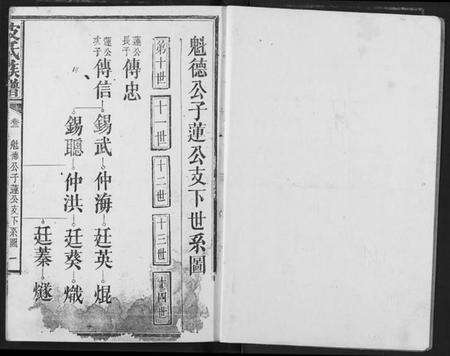 魁德公子蓮公支下世系圖
第十世 十一世 十二世 十三世 十四世
蓮公長子 傳忠
蓮公次子 傳信 錫武 仲海 廷英 焜
錫聰 仲洪 廷葵 熾
廷蓁 燧
氏族譜
魁德公子蓮公支下系圖 一